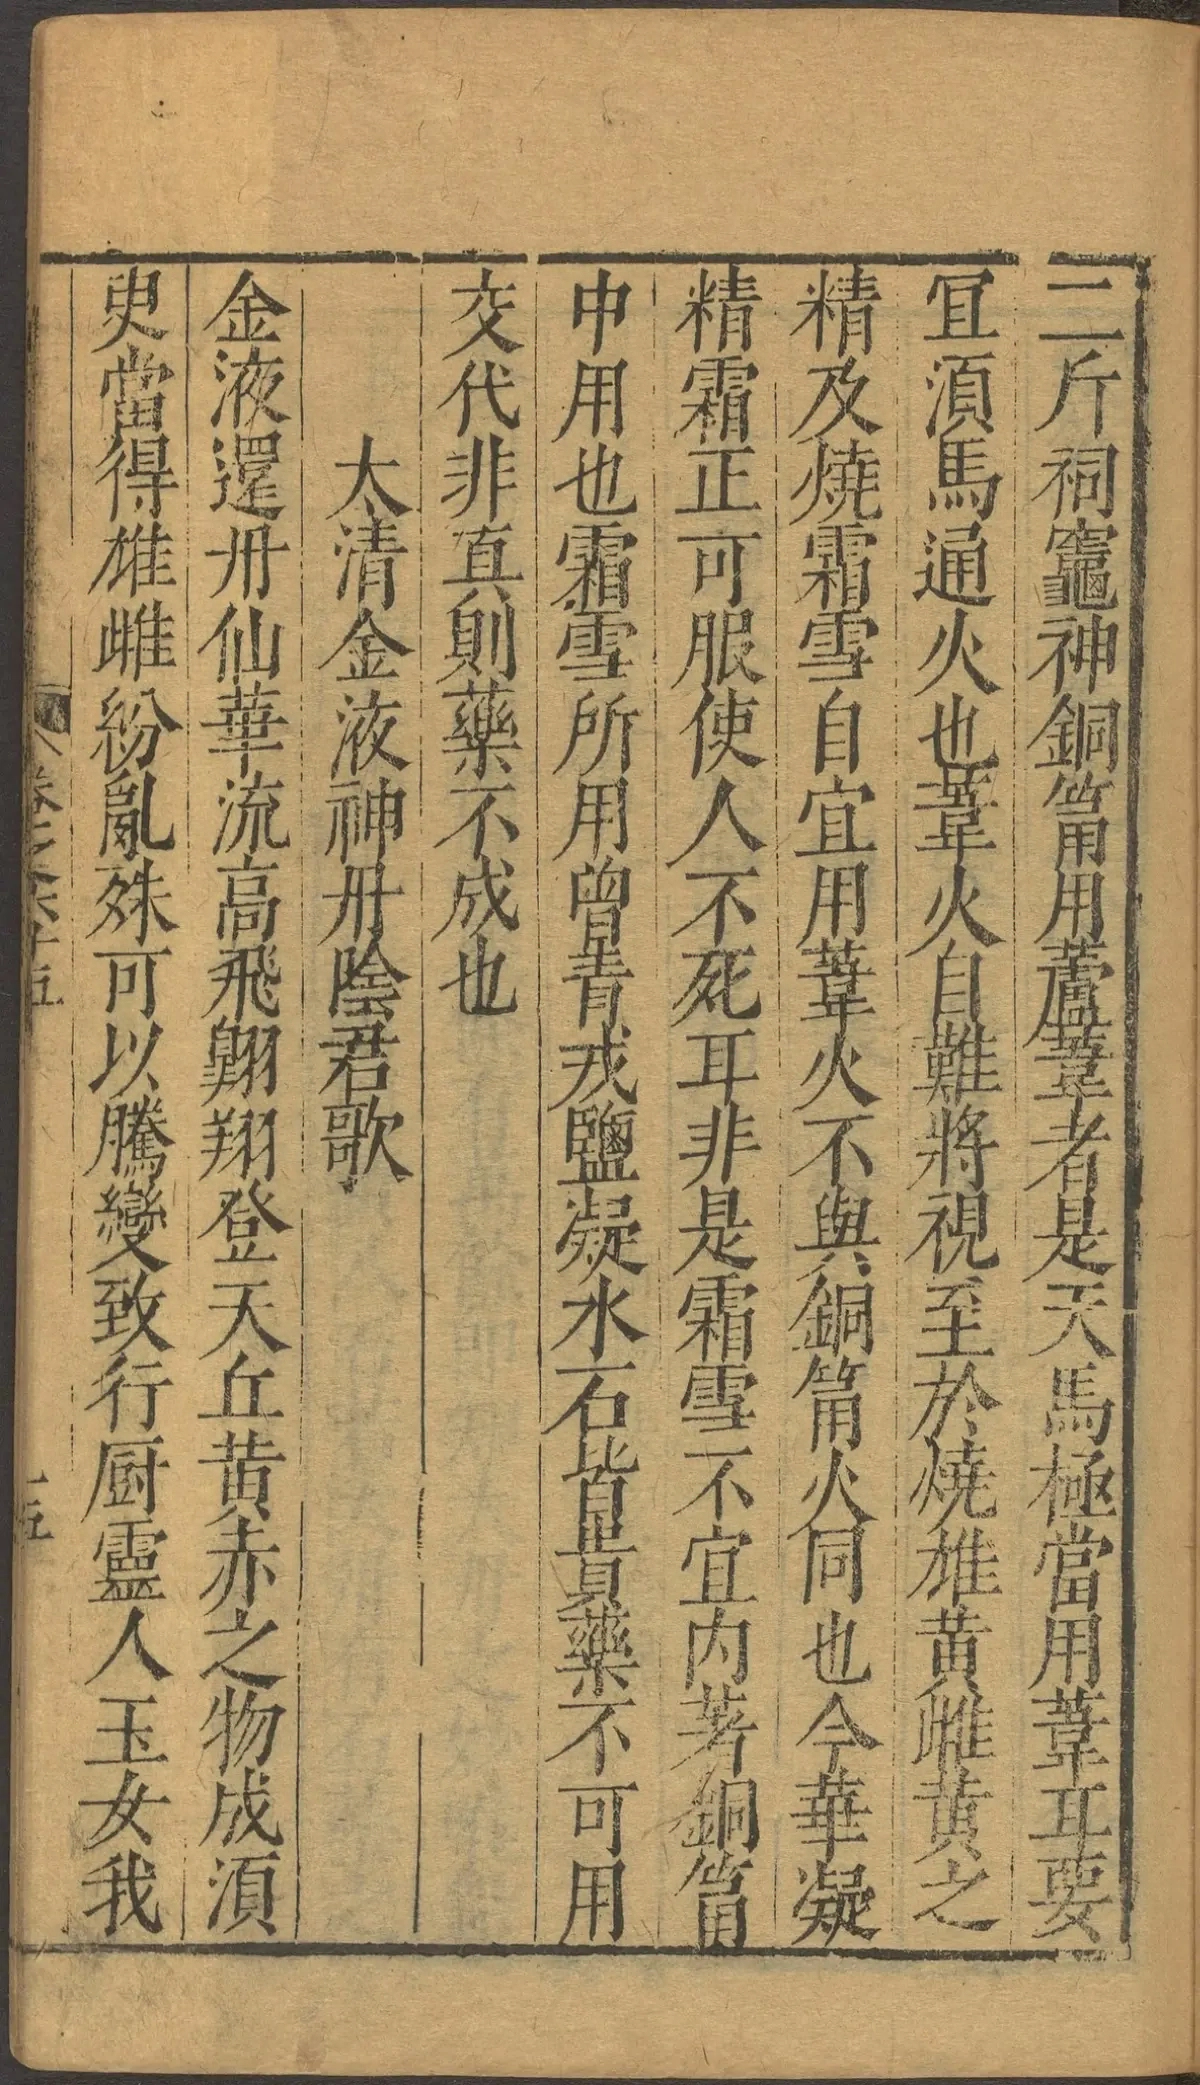 二斤祠竈神銅筩用蘆葦者是天馬極當用葦耳要
冝湏馬通火也葦火自難將視至於燒雄黄雌黄之
精及燒霜雪自宜用葦火不與銅筩火同也今華凝
精霜正可服使人不死耳非是霜雪不宜内著銅筩
中用也霜雪所用曾青戎鹽凝水石皆貴藥不可用
交代非真則藥不成也
太清金液神丹陰君歌
金液還丹仙華流高飛翺翔登天丘黄赤之物成湏
臾當得雄雌紛亂殊可以騰變致行厨靈人玉女我
卷之六十五
十五